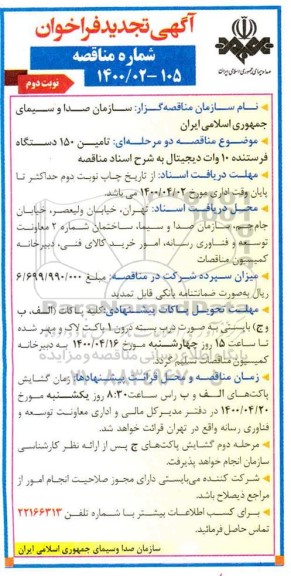 آگهی تجدید فراخوان
شماره مناقصه
۱۴۰۰/۰۲-۱۰۵
نوبت دوم
صدا و سیمای جمهوری اسلامی ایران
نام سازمان مناقصه‌گزار: سازمان صدا و سیمای
جمهوری اسلامی ایران
موضوع مناقصه دو مرحله‌ای: تامین ۱۵۰ دستگاه
فرستنده ۱۰ وات دیجیتال به شرح اسناد مناقصه
مهلت دریافت اسناد: از تاریخ چاپ نوبت دوم حداکثر تا
پایان وقت اداری مورخ ۱۴۰۰/۰۴/۰۲ می باشد.
محل دریافت اسناد: تهران، خیابان ولیعصر، خیابان
جام جم، سازمان صدا و سیما، ساختمان شماره ۲ معاونت
توسعه و فناوری رسانه، امور خرید کالای فنی، دبیرخانه
کمیسیون مناقصات
میزان سپرده شرکت در مناقصه: مبلغ ۶/۶۹۹/۹۹۰/۰۰۰
ریال به‌صورت ضمانتنامه بانکی قابل تمدید
مهلت تحویل پاکات پیشنهادی: کلیه پاکات (الف، ب
و ج) بایستی به صورت درب بسته درون ۱ پاکت لاک و مهر شده
تا ساعت ۱۵ روز چهارشنبه مورخ ۱۴۰۰/۰۴/۱۶ به دبیرخانه
کمیسیون مناقصات تسلیم گردد.
زمان مناقصه و محل قرائت پیشنهادها: زمان گشایش
پاکت‌های الف و ب راس ساعت ۸:۳۰ روز یکشنبه مورخ
۱۴۰۰/۰۴/۲۰ در دفتر مدیرکل مالی و اداری معاونت توسعه و
فناوری رسانه واقع در تهران قرائت خواهد شد.
مرحله دوم گشایش پاکت‌های ج پس از ارائه نظر کارشناسی
سازمان انجام خواهد پذیرفت.
شرکت کننده می‌بایستی دارای مجوز صلاحیت انجام امور از
مراجع ذیصلاح باشد.
برای کسب اطلاعات بیشتر با شماره تلفن ۲۲۱۶۶۳۱۳
تماس حاصل فرمائید.
سازمان صدا وسیمای جمهوری اسلامی ایران